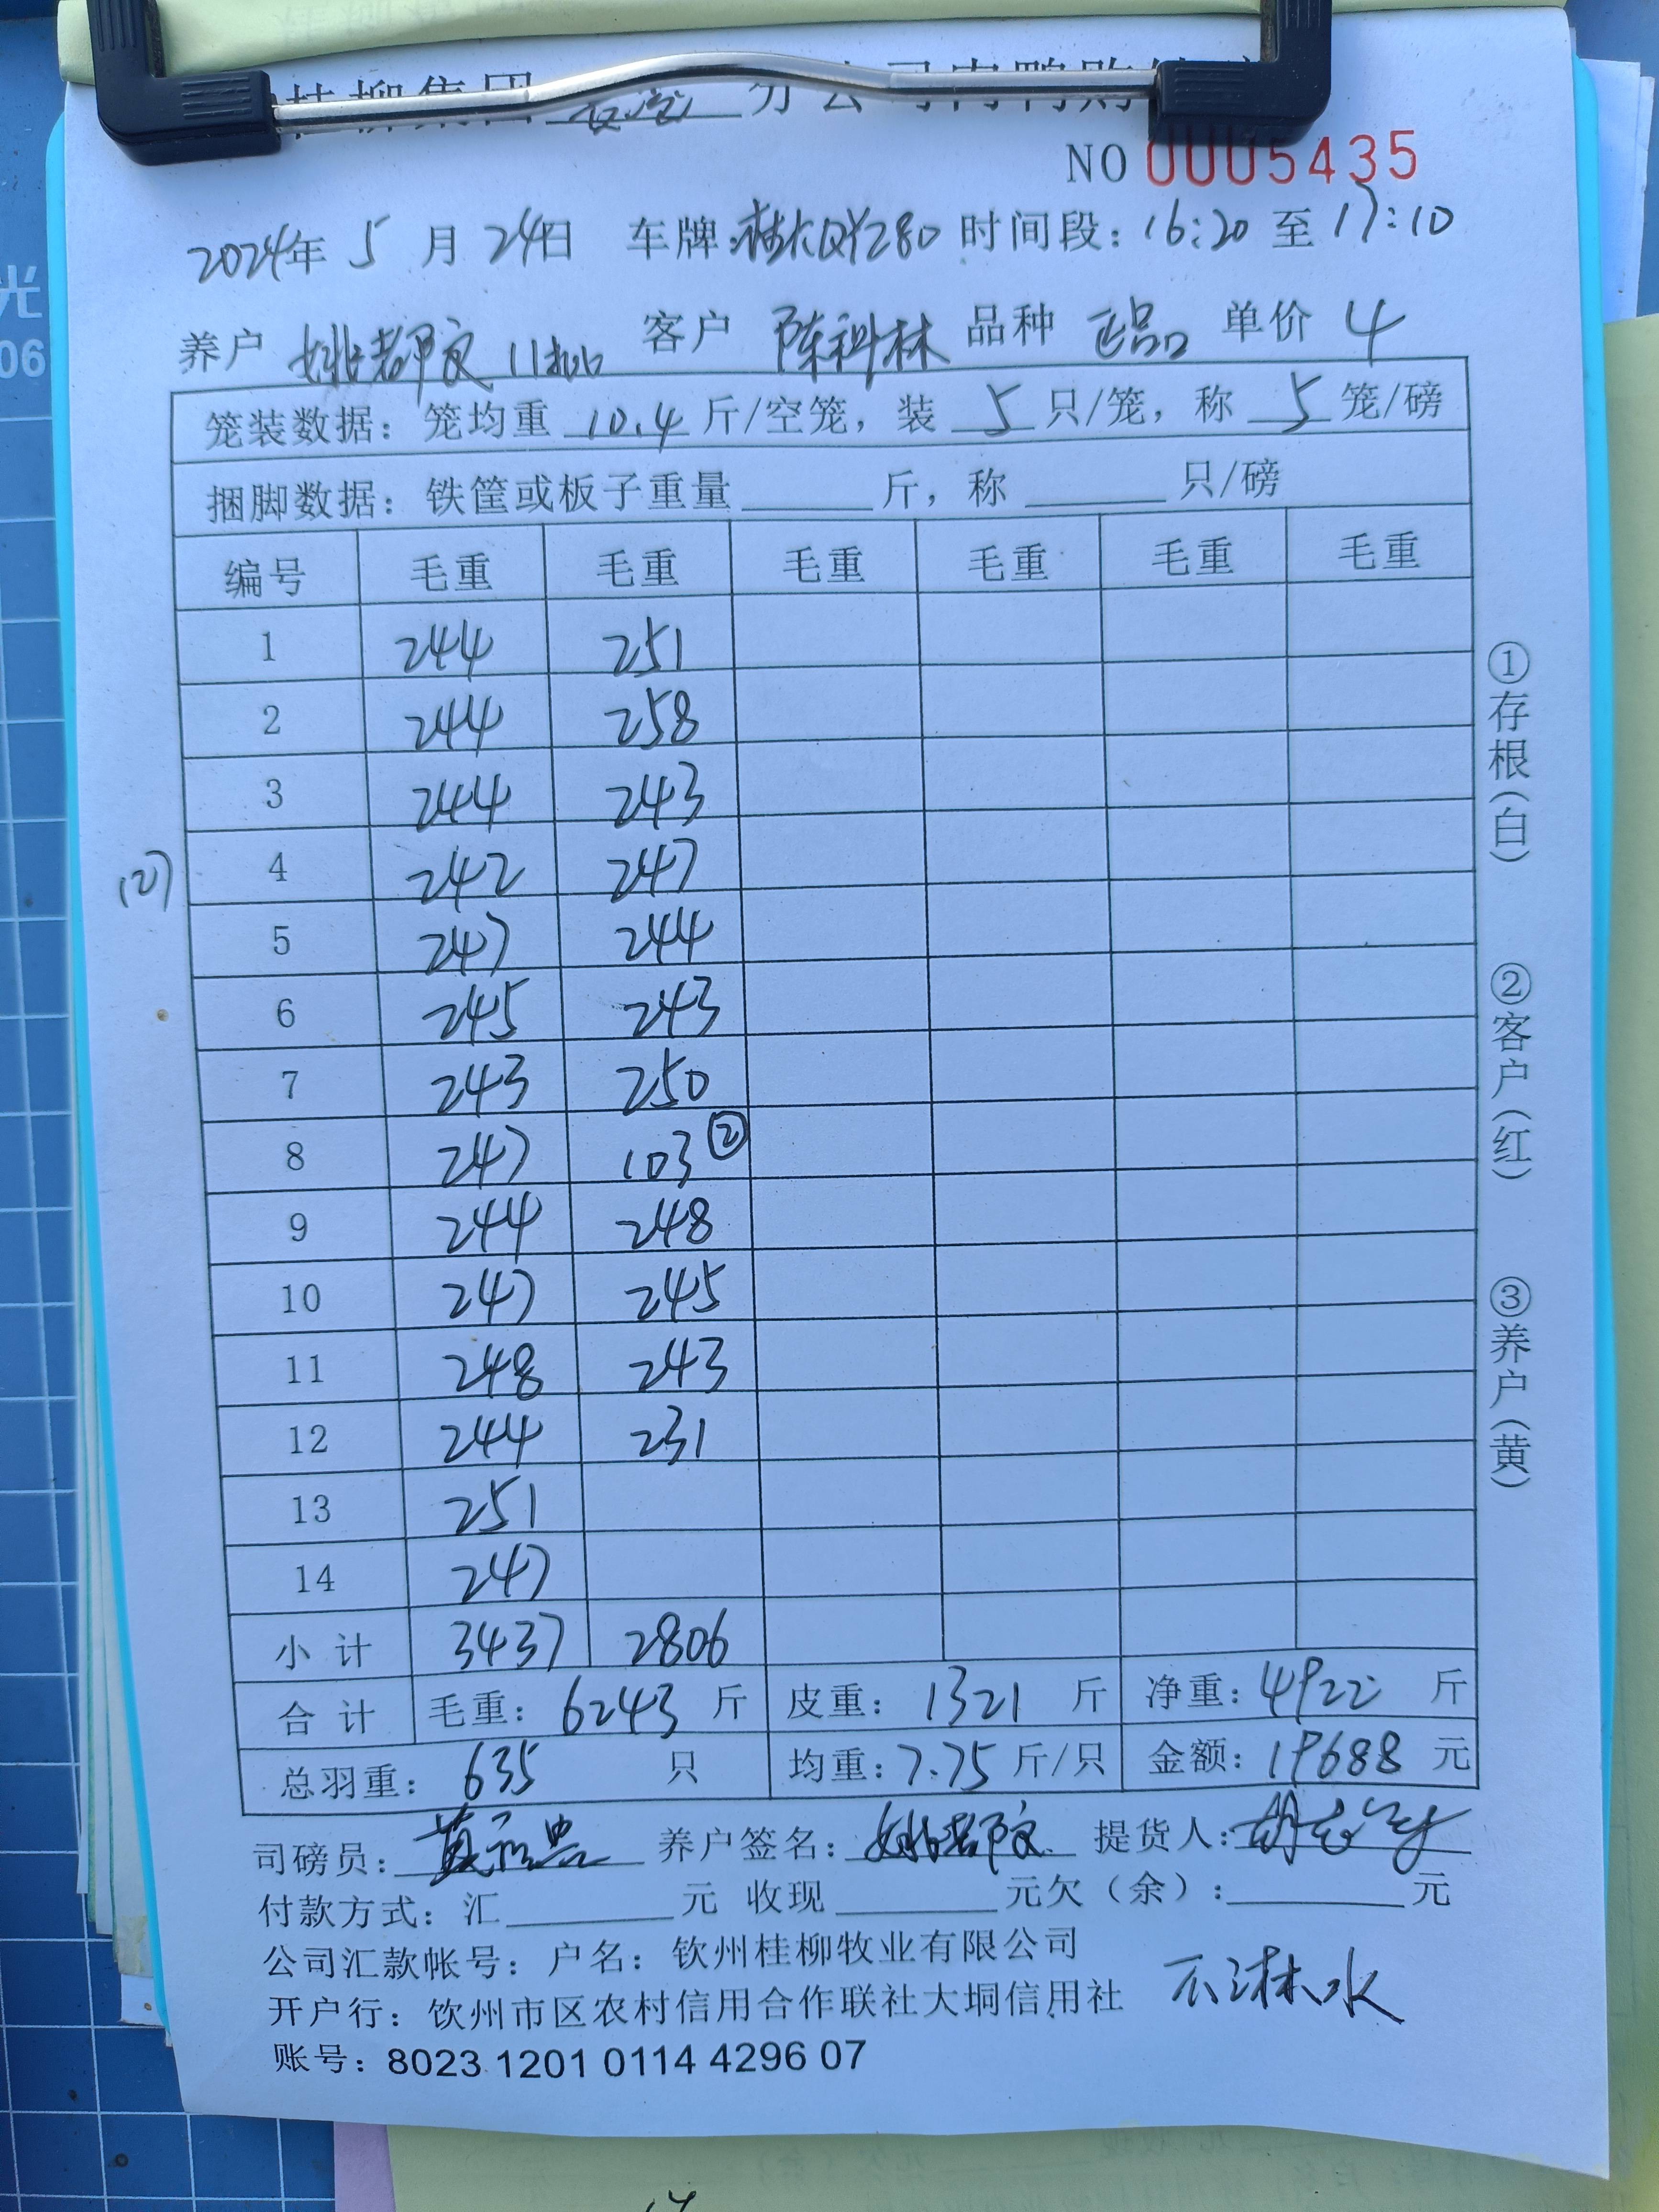 桂柳集团 分公司肉鸭购销
NO 0005435
2024年 5 月 24日 车牌: 桂KQY280 时间段: 16:20 至 17:10
养户 姚 客户 陈科林 品种 正品 单价 4
笼装数据: 笼均重 10.4 斤/空笼, 装 5 只/笼, 称 5 笼/磅
捆脚数据: 铁筐或板子重量 斤, 称 只/磅
编号 毛重 毛重 毛重 毛重 毛重 毛重
1 244 251
2 244 258
3 244 243
(2) 4 242 247
5 247 244
6 245 243
7 243 250
8 247 103 ②
9 244 248
10 247 245
11 248 243
12 244 231
13 251
14 247
小计 3437 2806
合计 毛重: 6243 斤 皮重: 1321 斤 净重: 4922 斤
总羽重: 635 只 均重: 7.75 斤/只 金额: 19688 元
司磅员: 黄 养户签名: 姚 提货人: 胡
付款方式: 汇 元 收现 元欠(余): 元
公司汇款帐号: 户名: 钦州桂柳牧业有限公司
开户行: 钦州市区农村信用合作联社大垌信用社
不淋水
账号: 8023 1201 0114 4296 07
①存根(白)
②客户(红)
③养户(黄)
光
06